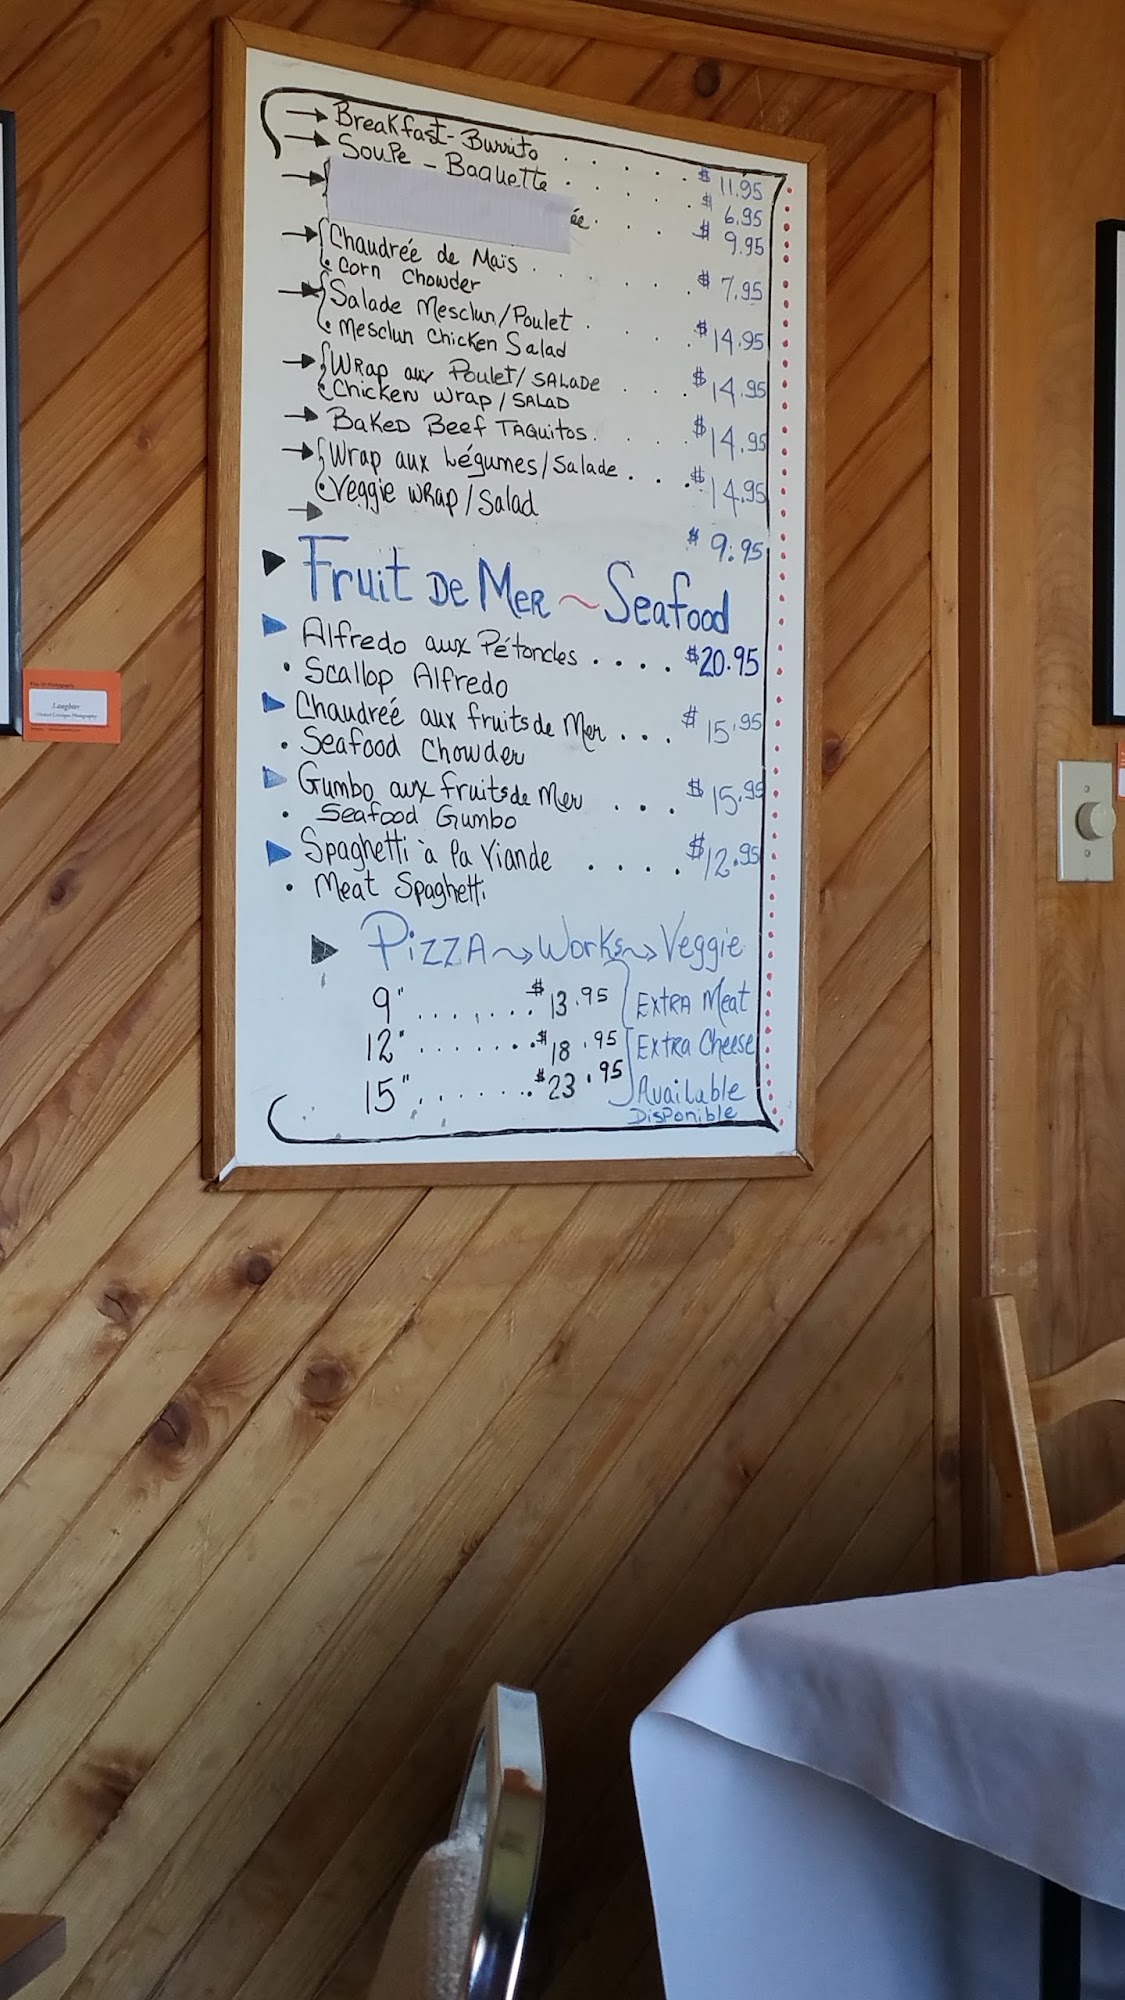 → Breakfast-Burrito . . . . . $ 11.95
→ Soupe - Baguette . . . . $ 6.95
→ ée . . . . $ 9.95
→ Chaudrée de Maïs . . . . . $ 7.95
• Corn Chowder
→ Salade Mesclun/Poulet . . . . $14.95
• Mesclun Chicken Salad
→ Wrap aux Poulet/SALADE . . . $14.95
• Chicken Wrap/SALAD
→ Baked Beef Taquitos . . . . $14.95
→ Wrap aux Légumes/Salade . . . . $14.95
• Veggie Wrap/Salad
→ $ 9.95
Fruit De Mer ~ Seafood
Alfredo aux Pétoncles . . . . $20.95
• Scallop Alfredo
Chaudrée aux fruits de Mer . . . $ 15.95
• Seafood Chowder
Gumbo aux fruits de Mer . . . $ 15.95
• Seafood Gumbo
Spaghetti à la Viande . . . . $12.95
• Meat Spaghetti
PIZZA ~> Works ~> Veggie
9" . . . . . . . $13.95 Extra Meat
12" . . . . . . . $18.95 Extra Cheese
15" . . . . . . . $23.95 Available
Disponible
Laughter